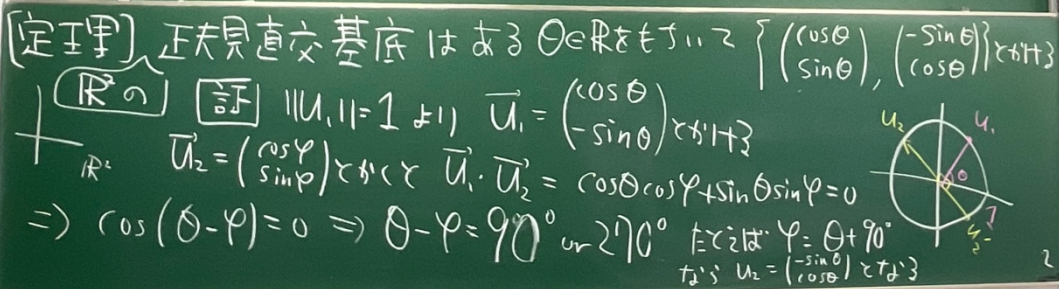 [定理] 正規直交基底はあるθ∈ℝをもちいて {(cosθ sinθ), (-sinθ cosθ)}とかける
ℝ²の [証] ||u₁||=1より u₁→=(cosθ -sinθ)とかける
ℝ² u₂→=(cosφ sinφ)とかくと u₁→・u₂→=cosθcosφ+sinθsinφ=0
⇒ cos(θ-φ)=0 ⇒ θ-φ=90° or 270° たとえばφ=θ+90°
なら u₂=(-sinθ cosθ)となる
u₂ u₁
θ
2